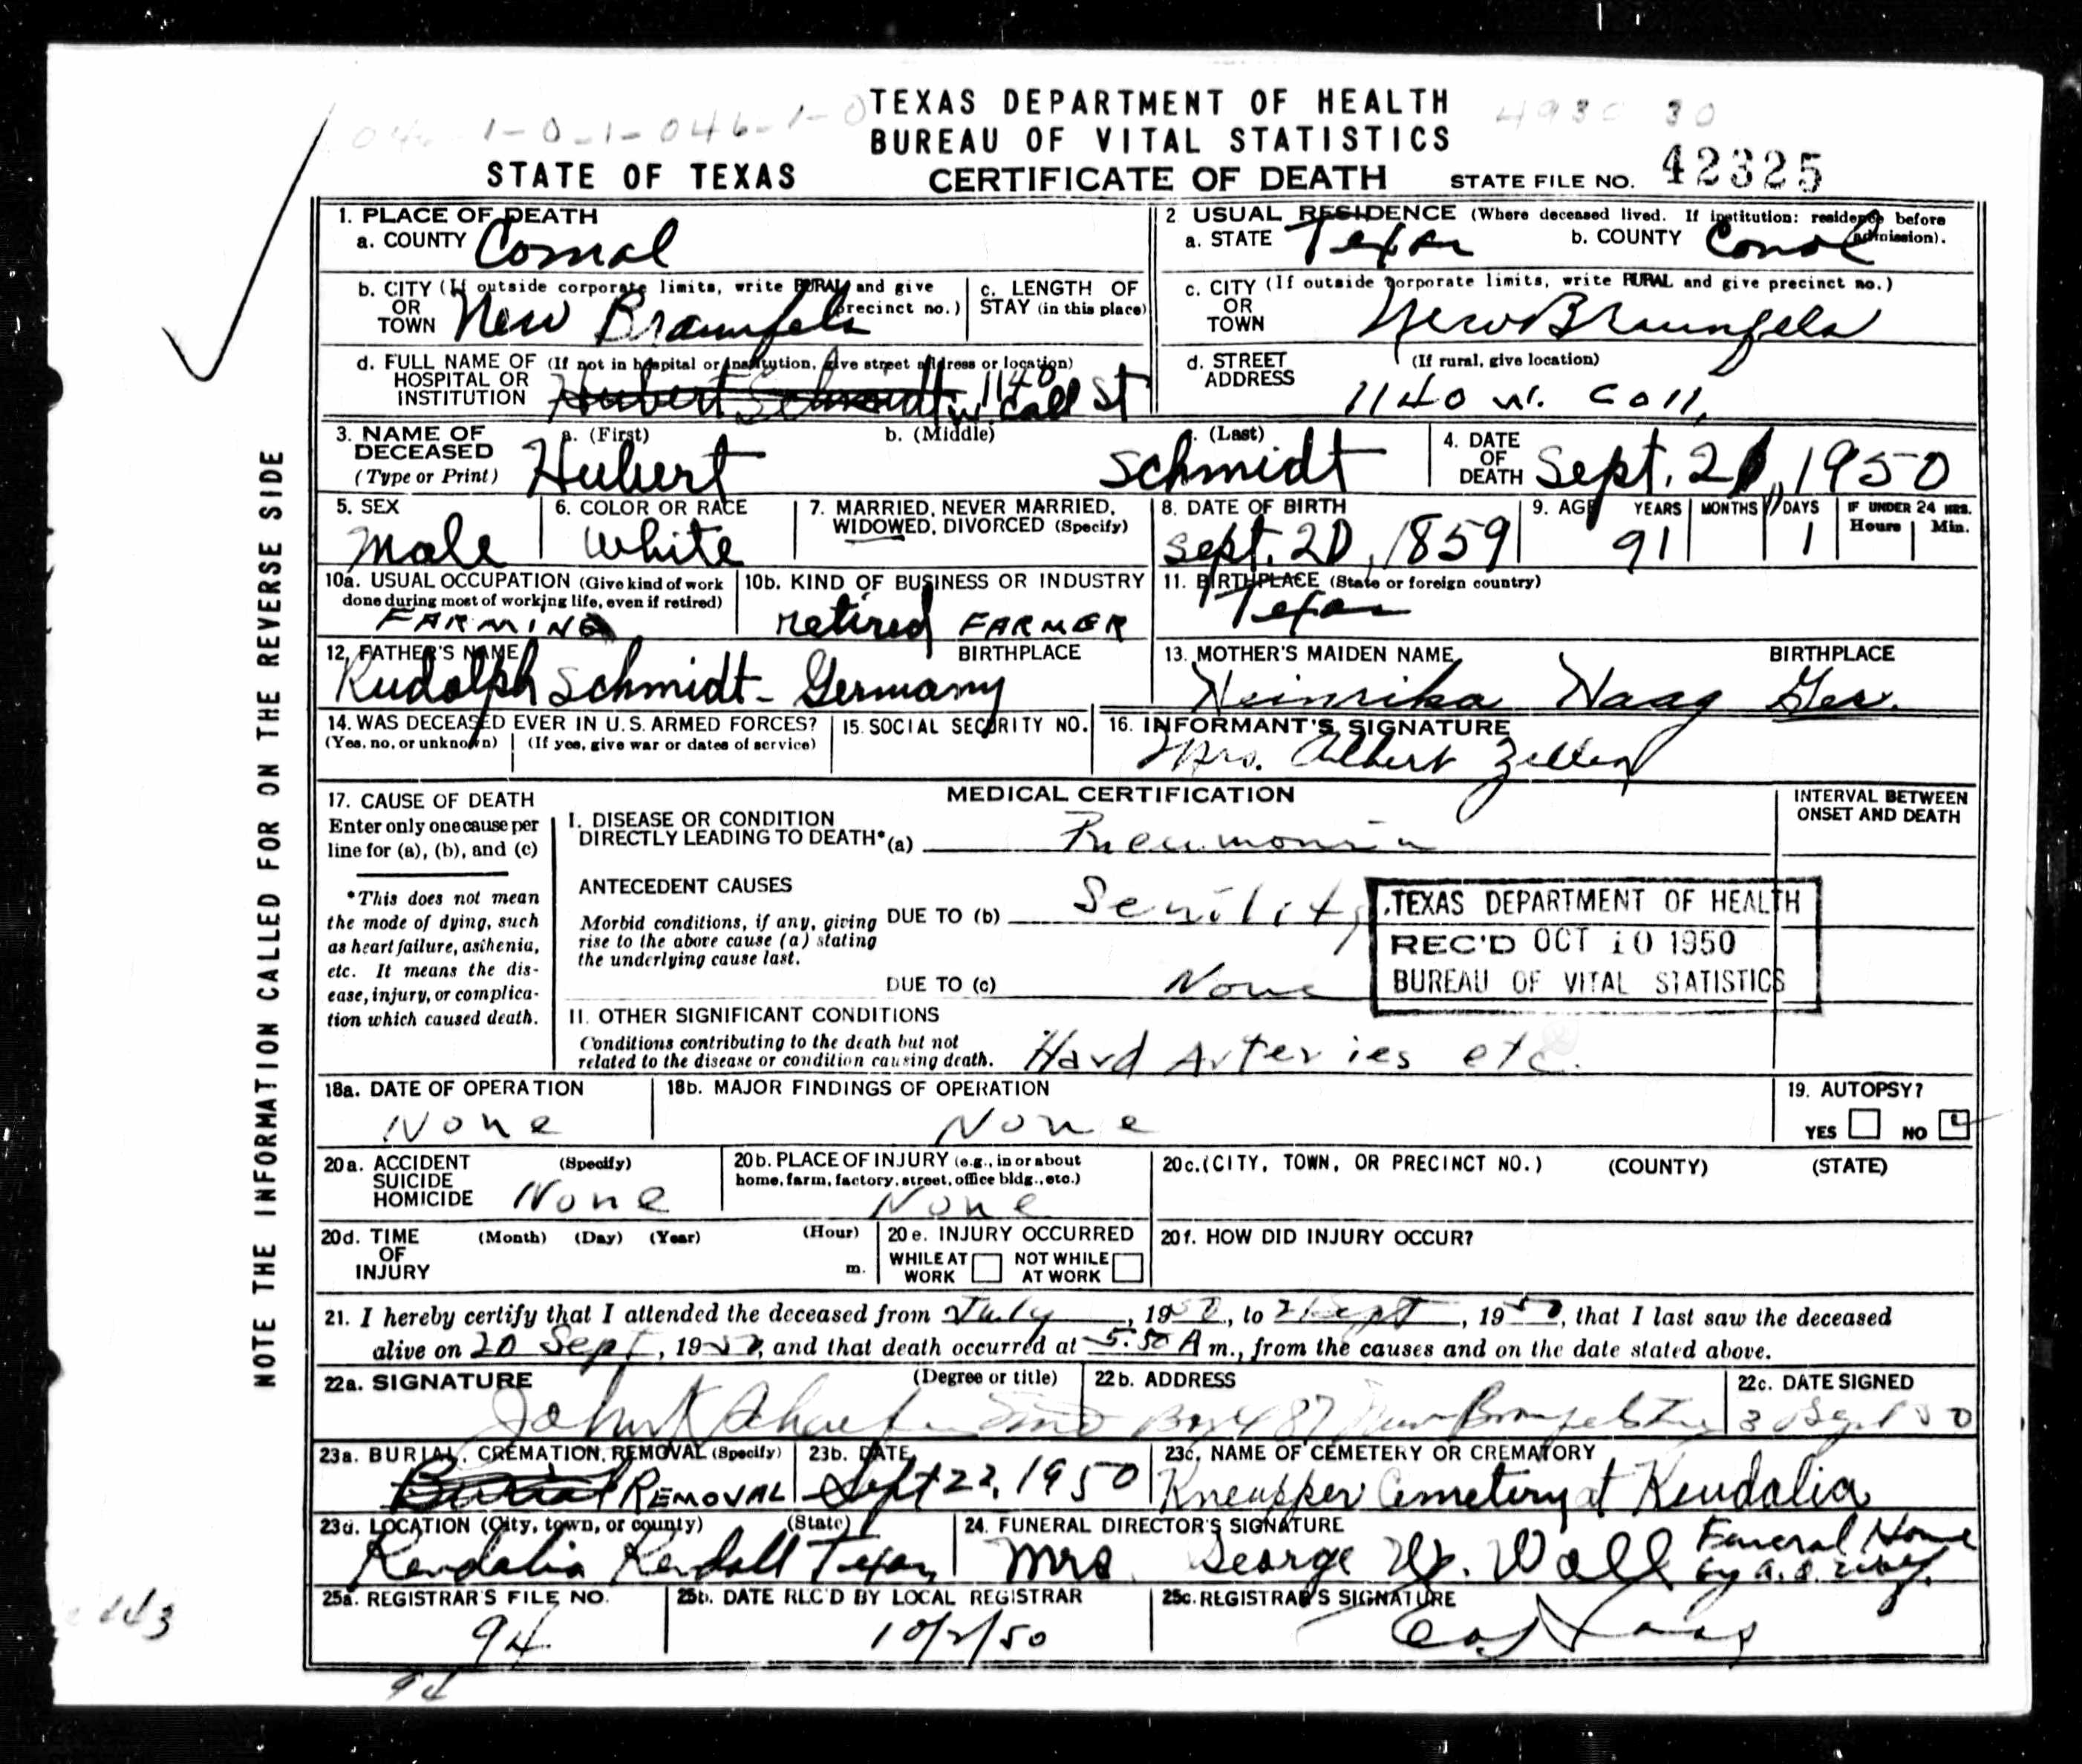 TEXAS DEPARTMENT OF HEALTH
BUREAU OF VITAL STATISTICS
STATE OF TEXAS CERTIFICATE OF DEATH STATE FILE NO. 42325
NOTE THE INFORMATION CALLED FOR ON THE REVERSE SIDE
1. PLACE OF DEATH
a. COUNTY Comal
2 USUAL RESIDENCE (Where deceased lived. If institution: residence before admission).
a. STATE Texas b. COUNTY Comal
b. CITY (If outside corporate limits, write RURAL and give precinct no.)
OR TOWN New Braunfels
c. LENGTH OF STAY (in this place)
c. CITY (If outside corporate limits, write RURAL and give precinct no.)
OR TOWN New Braunfels
d. FULL NAME OF (If not in hospital or institution, give street address or location)
HOSPITAL OR INSTITUTION Hubert Schmidt 1140 W. Coll St
d. STREET ADDRESS (If rural, give location)
1140 W. Coll,
3. NAME OF DECEASED (Type or Print)
a. (First) b. (Middle) c. (Last)
Hubert Schmidt
4. DATE OF DEATH Sept. 21, 1950
5. SEX
Male
6. COLOR OR RACE
White
7. MARRIED, NEVER MARRIED, WIDOWED, DIVORCED (Specify)
8. DATE OF BIRTH
Sept. 20, 1859
9. AGE YEARS MONTHS DAYS IF UNDER 24 HRS. Hours Min.
91 1
10a. USUAL OCCUPATION (Give kind of work done during most of working life, even if retired)
FARMING
10b. KIND OF BUSINESS OR INDUSTRY
retired FARMER
11. BIRTHPLACE (State or foreign country)
Texas
12. FATHER'S NAME BIRTHPLACE
Rudolph Schmidt - Germany
13. MOTHER'S MAIDEN NAME BIRTHPLACE
Heinrika Haag Ger.
14. WAS DECEASED EVER IN U.S. ARMED FORCES?
(Yes, no, or unknown) (If yes, give war or dates of service)
15. SOCIAL SECURITY NO.
16. INFORMANT'S SIGNATURE
Mrs. Albert Zeller
17. CAUSE OF DEATH
Enter only one cause per line for (a), (b), and (c)
*This does not mean the mode of dying, such as heart failure, asthenia, etc. It means the disease, injury, or complication which caused death.
MEDICAL CERTIFICATION
INTERVAL BETWEEN ONSET AND DEATH
I. DISEASE OR CONDITION
DIRECTLY LEADING TO DEATH* (a) Pneumonia
ANTECEDENT CAUSES
Morbid conditions, if any, giving rise to the above cause (a) stating the underlying cause last.
DUE TO (b) Senility
DUE TO (c) None
TEXAS DEPARTMENT OF HEALTH
REC'D OCT 10 1950
BUREAU OF VITAL STATISTICS
II. OTHER SIGNIFICANT CONDITIONS
Conditions contributing to the death but not related to the disease or condition causing death. Hard Arteries etc.
18a. DATE OF OPERATION
None
18b. MAJOR FINDINGS OF OPERATION
None
19. AUTOPSY?
YES NO
20a. ACCIDENT SUICIDE HOMICIDE (Specify)
None
20b. PLACE OF INJURY (e.g., in or about home, farm, factory, street, office bldg., etc.)
None
20c. (CITY, TOWN, OR PRECINCT NO.) (COUNTY) (STATE)
20d. TIME OF INJURY (Month) (Day) (Year) (Hour) m.
20e. INJURY OCCURRED
WHILE AT WORK NOT WHILE AT WORK
20f. HOW DID INJURY OCCUR?
21. I hereby certify that I attended the deceased from July, 1950, to 21 Sept, 1950, that I last saw the deceased
alive on 20 Sept, 1950, and that death occurred at 5:50 A m., from the causes and on the date stated above.
22a. SIGNATURE (Degree or title)
John
22b. ADDRESS
Box 487 New Braunfels Tex
22c. DATE SIGNED
3 Sept 50
23a. BURIAL, CREMATION, REMOVAL (Specify)
Burial REMOVAL
23b. DATE
Sept 22, 1950
23c. NAME OF CEMETERY OR CREMATORY
Kneupper Cemetery at Kendalia
23d. LOCATION (City, town, or county) (State)
Kendalia Kendall Texas
24. FUNERAL DIRECTOR'S SIGNATURE
Mrs George W. Wall Funeral Home
25a. REGISTRAR'S FILE NO.
94
25b. DATE REC'D BY LOCAL REGISTRAR
10/2/50
25c. REGISTRAR'S SIGNATURE
94